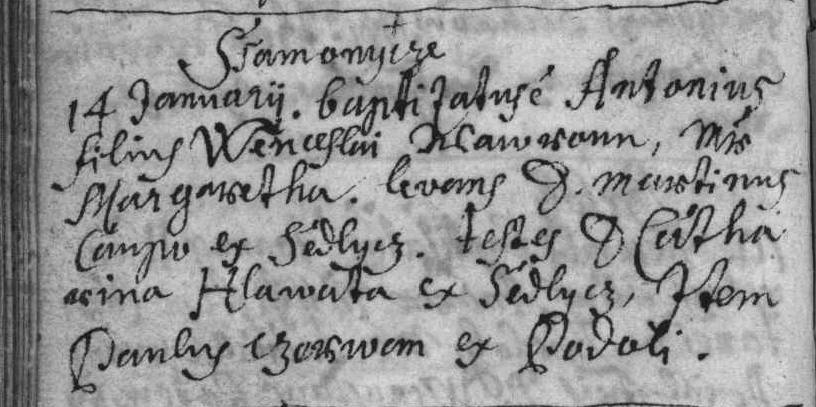 Stamonycze
14 Januarij. baptizatus é Antonius
filius Wenceslai Klawronn, Mris
Margaretha. levans D. Martinus
Caupo ex Sedlycz. testes D Catha
rina Hlawata ex Sedlycz, Item
Paulus Czerwem ex Podoli.